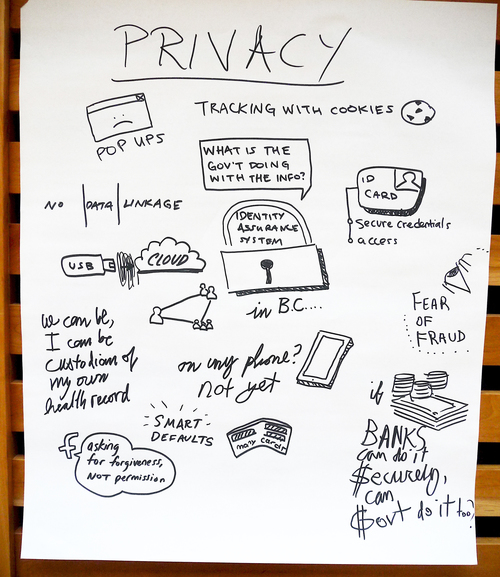 PRIVACY
POP UPS
TRACKING WITH COOKIES
WHAT IS THE
GOV'T DOING
WITH THE INFO?
ID
CARD
Secure credentials
access
NO |DATA| LINKAGE
IDENTITY
ASSURANCE
SYSTEM
USB
CLOUD
in B.C....
FEAR
OF
FRAUD
we can be,
I can be
custodian of
my own
health record
on my phone?
not yet
SMART
DEFAULTS
many cards
f
asking
for forgiveness,
NOT permission
if
BANKS
can do it
$ecurely,
can
$ovt do it too?